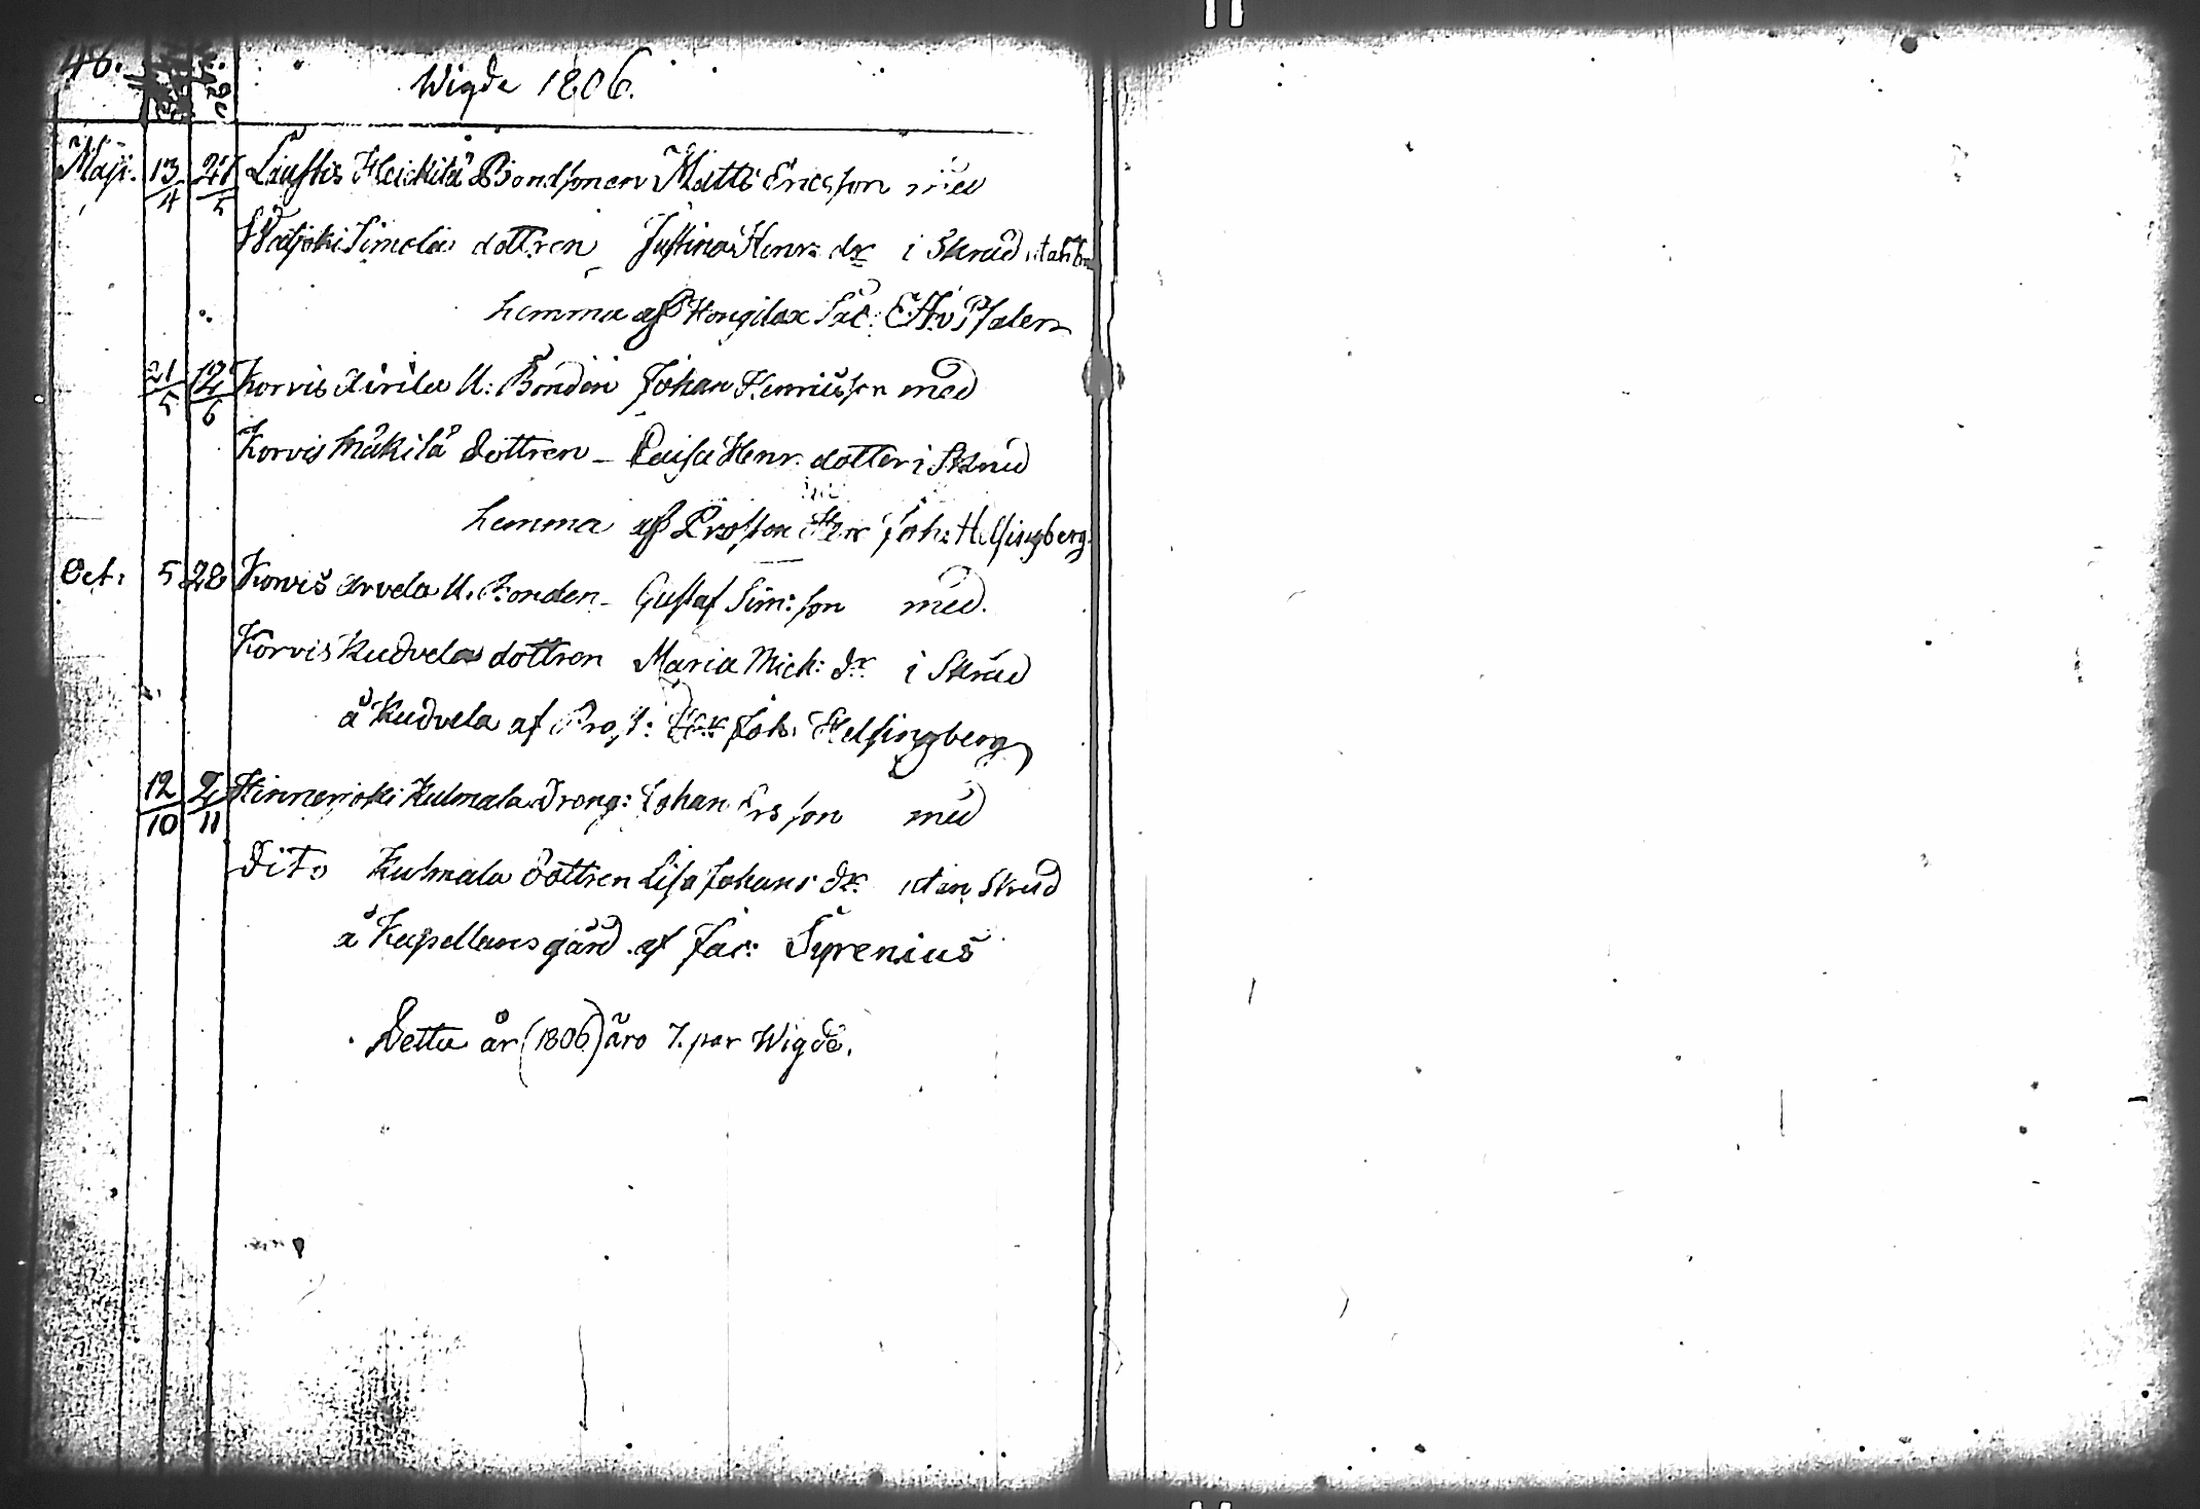 46.
Wigde 1806.
Maji. 13/4 27/5 Laustis Heickilä Bondsonen Matts Ericsson med
Simola dottren Justina Henr: dr i Skrud
hemma af Hongilax Sac: E. H. v Pfaler
21/5 12/6 Korvis Airila U: Bonden Johan Henricsson med
Korvis Mäkilä dottren - Caisa Henr. dotter i Skrud
hemma af Prosten Herr Joh: Helsingberg
Oct: 5 28 Korvis Arvela U. Bonden - Gustaf Sim: son med.
Korvis Kudvela dottren Maria Mich: dr i Skrud
å Kudvela af Prost: Herr Joh: Helsingberg
12/10 2/11 Hinnerjoki Kulmala Dreng: Johan Ers son med
Dito Kulmala dottren Lisa Johans dr utan Skrud
å Kapellans gård af Sac: Syrenius
Detta år (1806) äro 7. par Wigde.